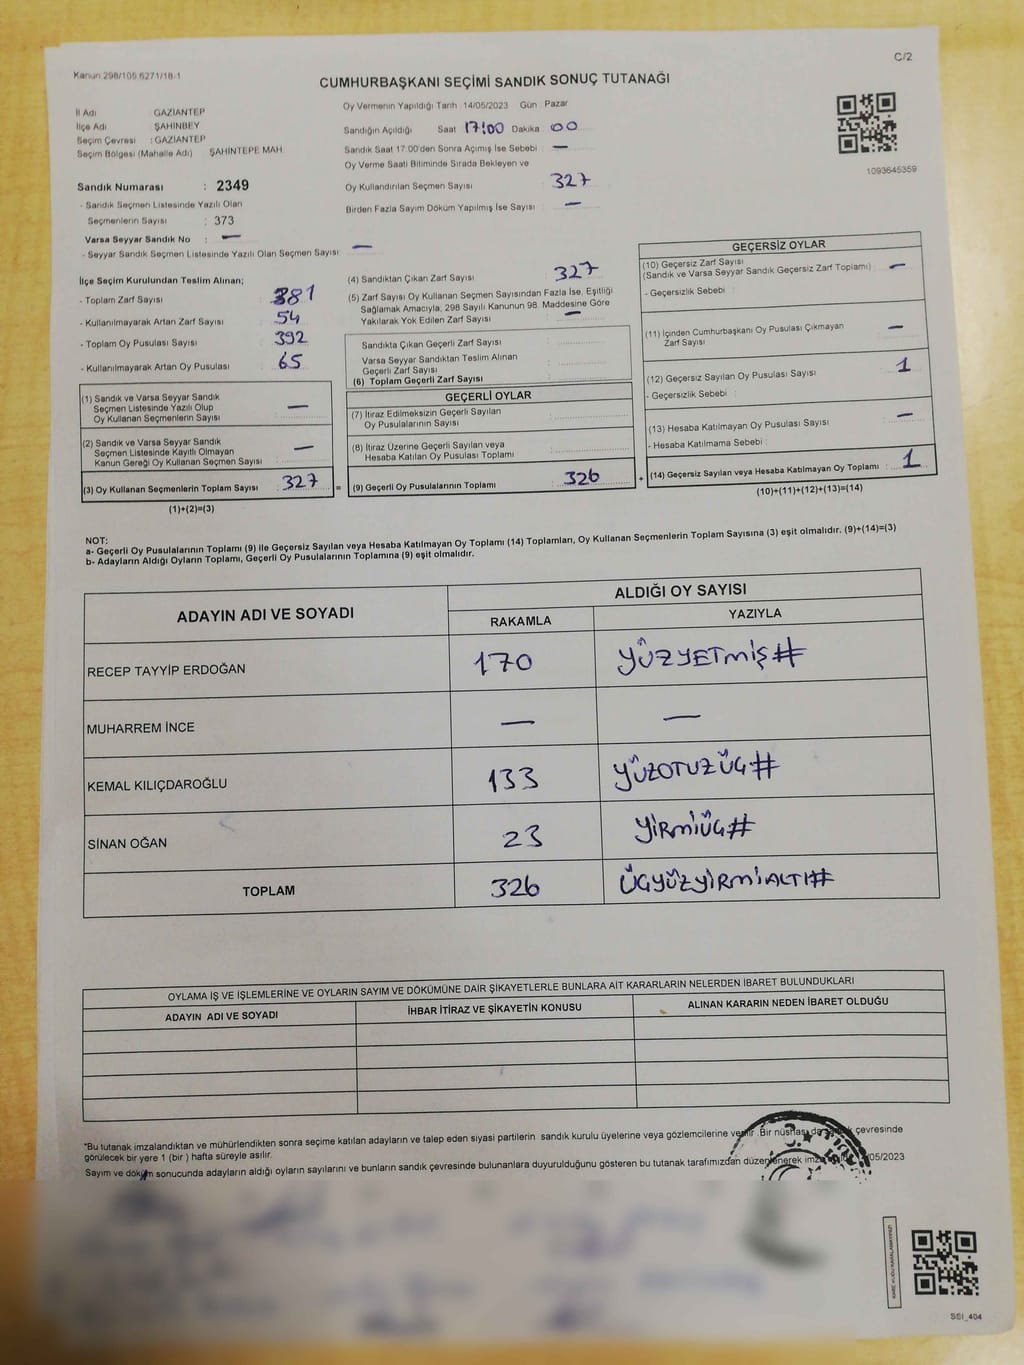 Kanun 298/105 6271/18-1
C/2
CUMHURBAŞKANI SEÇİMİ SANDIK SONUÇ TUTANAĞI
İl Adı GAZİANTEP
İlçe Adı ŞAHİNBEY
Seçim Çevresi : GAZİANTEP
Seçim Bölgesi (Mahalle Adı) ŞAHİNTEPE MAH
Sandık Numarası : 2349
- Sandık Seçmen Listesinde Yazılı Olan
Seçmenlerin Sayısı : 373
Varsa Seyyar Sandık No : —
- Seyyar Sandık Seçmen Listesinde Yazılı Olan Seçmen Sayısı : —
Oy Vermenin Yapıldığı Tarih 14/05/2023 Gün Pazar
Sandığın Açıldığı Saat 17:00 Dakika 00
Sandık Saat 17:00'den Sonra Açılmış İse Sebebi : —
Oy Verme Saati Bitiminde Sırada Bekleyen ve
Oy Kullandırılan Seçmen Sayısı : 327
Birden Fazla Sayım Döküm Yapılmış İse Sayısı : —
1093645359
İlçe Seçim Kurulundan Teslim Alınan;
- Toplam Zarf Sayısı : 381
- Kullanılmayarak Artan Zarf Sayısı : 54
- Toplam Oy Pusulası Sayısı : 392
- Kullanılmayarak Artan Oy Pusulası : 65
(1) Sandık ve Varsa Seyyar Sandık
Seçmen Listesinde Yazılı Olup
Oy Kullanan Seçmenlerin Sayısı : —
(2) Sandık ve Varsa Seyyar Sandık
Seçmen Listesinde Kayıtlı Olmayan
Kanun Gereği Oy Kullanan Seçmen Sayısı : —
(3) Oy Kullanan Seçmenlerin Toplam Sayısı : 327 =
(1)+(2)=(3)
(4) Sandıktan Çıkan Zarf Sayısı : 327
(5) Zarf Sayısı Oy Kullanan Seçmen Sayısından Fazla İse, Eşitliği
Sağlamak Amacıyla, 298 Sayılı Kanunun 98. Maddesine Göre
Yakılarak Yok Edilen Zarf Sayısı : —
Sandıkta Çıkan Geçerli Zarf Sayısı :
Varsa Seyyar Sandıktan Teslim Alınan
Geçerli Zarf Sayısı :
(6) Toplam Geçerli Zarf Sayısı :
GEÇERLİ OYLAR
(7) İtiraz Edilmeksizin Geçerli Sayılan
Oy Pusulalarının Sayısı :
(8) İtiraz Üzerine Geçerli Sayılan veya
Hesaba Katılan Oy Pusulası Toplamı :
(9) Geçerli Oy Pusulalarının Toplamı : 326 +
GEÇERSİZ OYLAR
(10) Geçersiz Zarf Sayısı
(Sandık ve Varsa Seyyar Sandık Geçersiz Zarf Toplamı) : —
- Geçersizlik Sebebi :
(11) İçinden Cumhurbaşkanı Oy Pusulası Çıkmayan
Zarf Sayısı : —
(12) Geçersiz Sayılan Oy Pusulası Sayısı : 1
- Geçersizlik Sebebi :
(13) Hesaba Katılmayan Oy Pusulası Sayısı : —
- Hesaba Katılmama Sebebi :
(14) Geçersiz Sayılan veya Hesaba Katılmayan Oy Toplamı : 1
(10)+(11)+(12)+(13)=(14)
NOT:
a- Geçerli Oy Pusulalarının Toplamı (9) ile Geçersiz Sayılan veya Hesaba Katılmayan Oy Toplamı (14) Toplamları, Oy Kullanan Seçmenlerin Toplam Sayısına (3) eşit olmalıdır. (9)+(14)=(3)
b- Adayların Aldığı Oyların Toplamı, Geçerli Oy Pusulalarının Toplamına (9) eşit olmalıdır.
ADAYIN ADI VE SOYADI
ALDIĞI OY SAYISI
RAKAMLA YAZIYLA
RECEP TAYYİP ERDOĞAN 170 YÜZYETMİŞ#
MUHARREM İNCE — —
KEMAL KILIÇDAROĞLU 133 YÜZOTUZÜÇ#
SİNAN OĞAN 23 YİRMİÜÇ#
TOPLAM 326 ÜÇYÜZYİRMİALTI#
OYLAMA İŞ VE İŞLEMLERİNE VE OYLARIN SAYIM VE DÖKÜMÜNE DAİR ŞİKAYETLERLE BUNLARA AİT KARARLARIN NELERDEN İBARET BULUNDUKLARI
ADAYIN ADI VE SOYADI İHBAR İTİRAZ VE ŞİKAYETİN KONUSU ALINAN KARARIN NEDEN İBARET OLDUĞU
*Bu tutanak imzalandıktan ve mühürlendikten sonra seçime katılan adayların ve talep eden siyasi partilerin sandık kurulu üyelerine veya gözlemcilerine verilir. Bir nüshası da sandık çevresinde
görülecek bir yere 1 (bir ) hafta süreyle asılır.
Sayım ve döküm sonucunda adayların aldığı oyların sayılarını ve bunların sandık çevresinde bulunanlara duyurulduğunu gösteren bu tutanak tarafımızdan düzenlenerek /05/2023
SSI_404